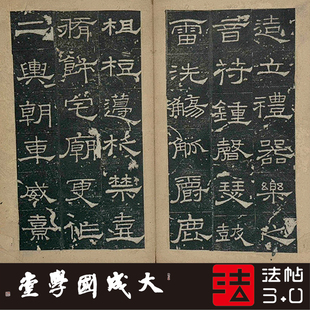 造立禮器樂之
音符鍾磬瑟鼓
雷洗觴觚爵鹿
柤梪籩柉禁壺
脩飾宅廟更作
二輿朝車威熹
大成國學堂
法
法帖
3.0